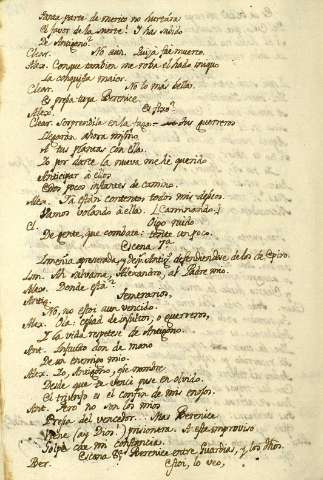 Tanta parte de merito no hurtára
El favor de la suerte! I has sabido
De Antigono?
Clear. No aun. Quizá fue muerto.
Alex. Conque tambien me roba el hado iniquo
La conquista maior.
Clear. No la mas bella.
Es presa tuya Berenice.
Alex. Es fixo?
Clear. Sorprendida en la fuga, tus guerreros
Llegarán ahora mismo
A tus plantas con ella.
Yo por darte la nueva me he querido
Anticipar á ellos
Estos pocos instantes de camino.
Alex. Ya están contentos todos mis deseos.
Vamos volando á ella. [Caminando.]
Cl. Oigo ruido
De gente, que combate: tente un poco.
Escena 7ª
Ismenia apresurada, y desp. Antig. defendiendose de los de Epiro.
Ism. Ah salvame, Alexandro, al Padre mio.
Alex. Donde está?
Antig. Temerarios,
No, no estoi aun vencido.
Alex. Ola: cesad de insultos, o guerreros,
I la vida respeten de Antigono.
Ant. Infausto don de mano
De un enemigo mio.
Alex. Yo, Antigono, ese nombre
Desde que te vencí puse en olvido.
El triunfo es el confin de mis enojos.
Ant. Pero no son los mios
Presa del vencedor. Mas Berenice
Viene (ai Dios!) prisionera. A este improviso
Golpe cae mi constancia.
Escena 8ª Berenice entre Guardias, y los dhos.
Ber. Estoi, lo veo,